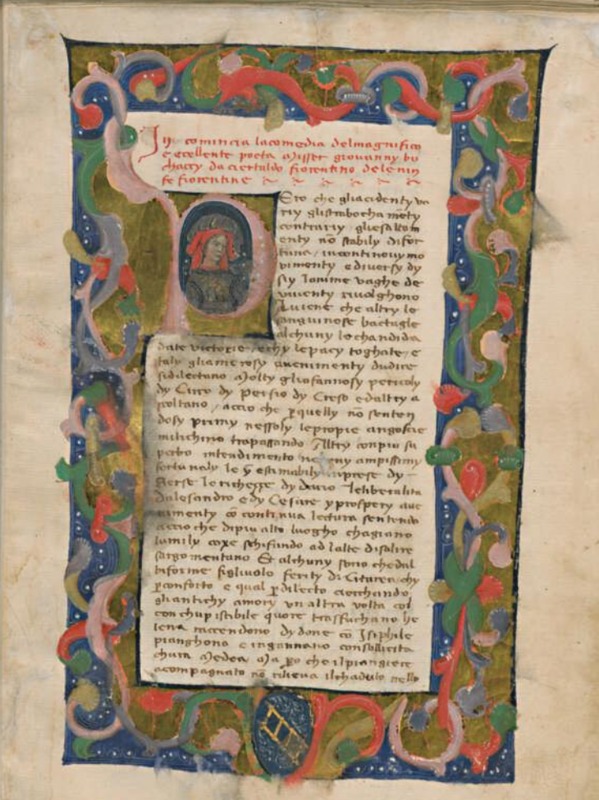 In comincia lacomedia delmagnifico
e eccellente poeta Misser giovanny bo
chaccy da certaldo fiorentino delenin
fe fiorentine
Ero che gliacidenty va
rij glistrabocha mēty
contrarij gliesaltam
enty nō stabily difor
tuna incontinouy mo
vimenty e diversy dy
sij lanime vaghe de
viventy rivolghono
Aviene che altry le
sanguinose bactagle
alchuny le chandida
date victorie echy lepacy toghate e
taly gliamorosy avenimenty dudire
sidilectano Molty gliafannosy pericoly
dy Ciro dy Persio dy Creso e daltry a
scoltano accio che p quelly nō senten
dosy primy nessoly lepropie angoscie
mitichino trapassando Altry conpiu su
perbo intendimento ampissimy
le y estimabily inprese dy
Serse le richeze dy dario leliberalita
dalesandro e dy Cesare prospery ave
nimenty cō continua lectura sentendo
accio che dipiu alto luogho chagiano
lumily coxe schifando ad lalte disalire
sargomentano Et alchuny sono che dal
biforme figliuolo ferity di Citarea chy
p conforto e qual p dilecto cierchando
gliantichy amory un altra volta col
conchupiscibile quore trasfuchano he
lena raccendono dydone cō Isiphile
pianghono e ingannano consollicita
chura Medea Ma po che ilpiangiere
acompagnato nō rilieva ilchaduto nello